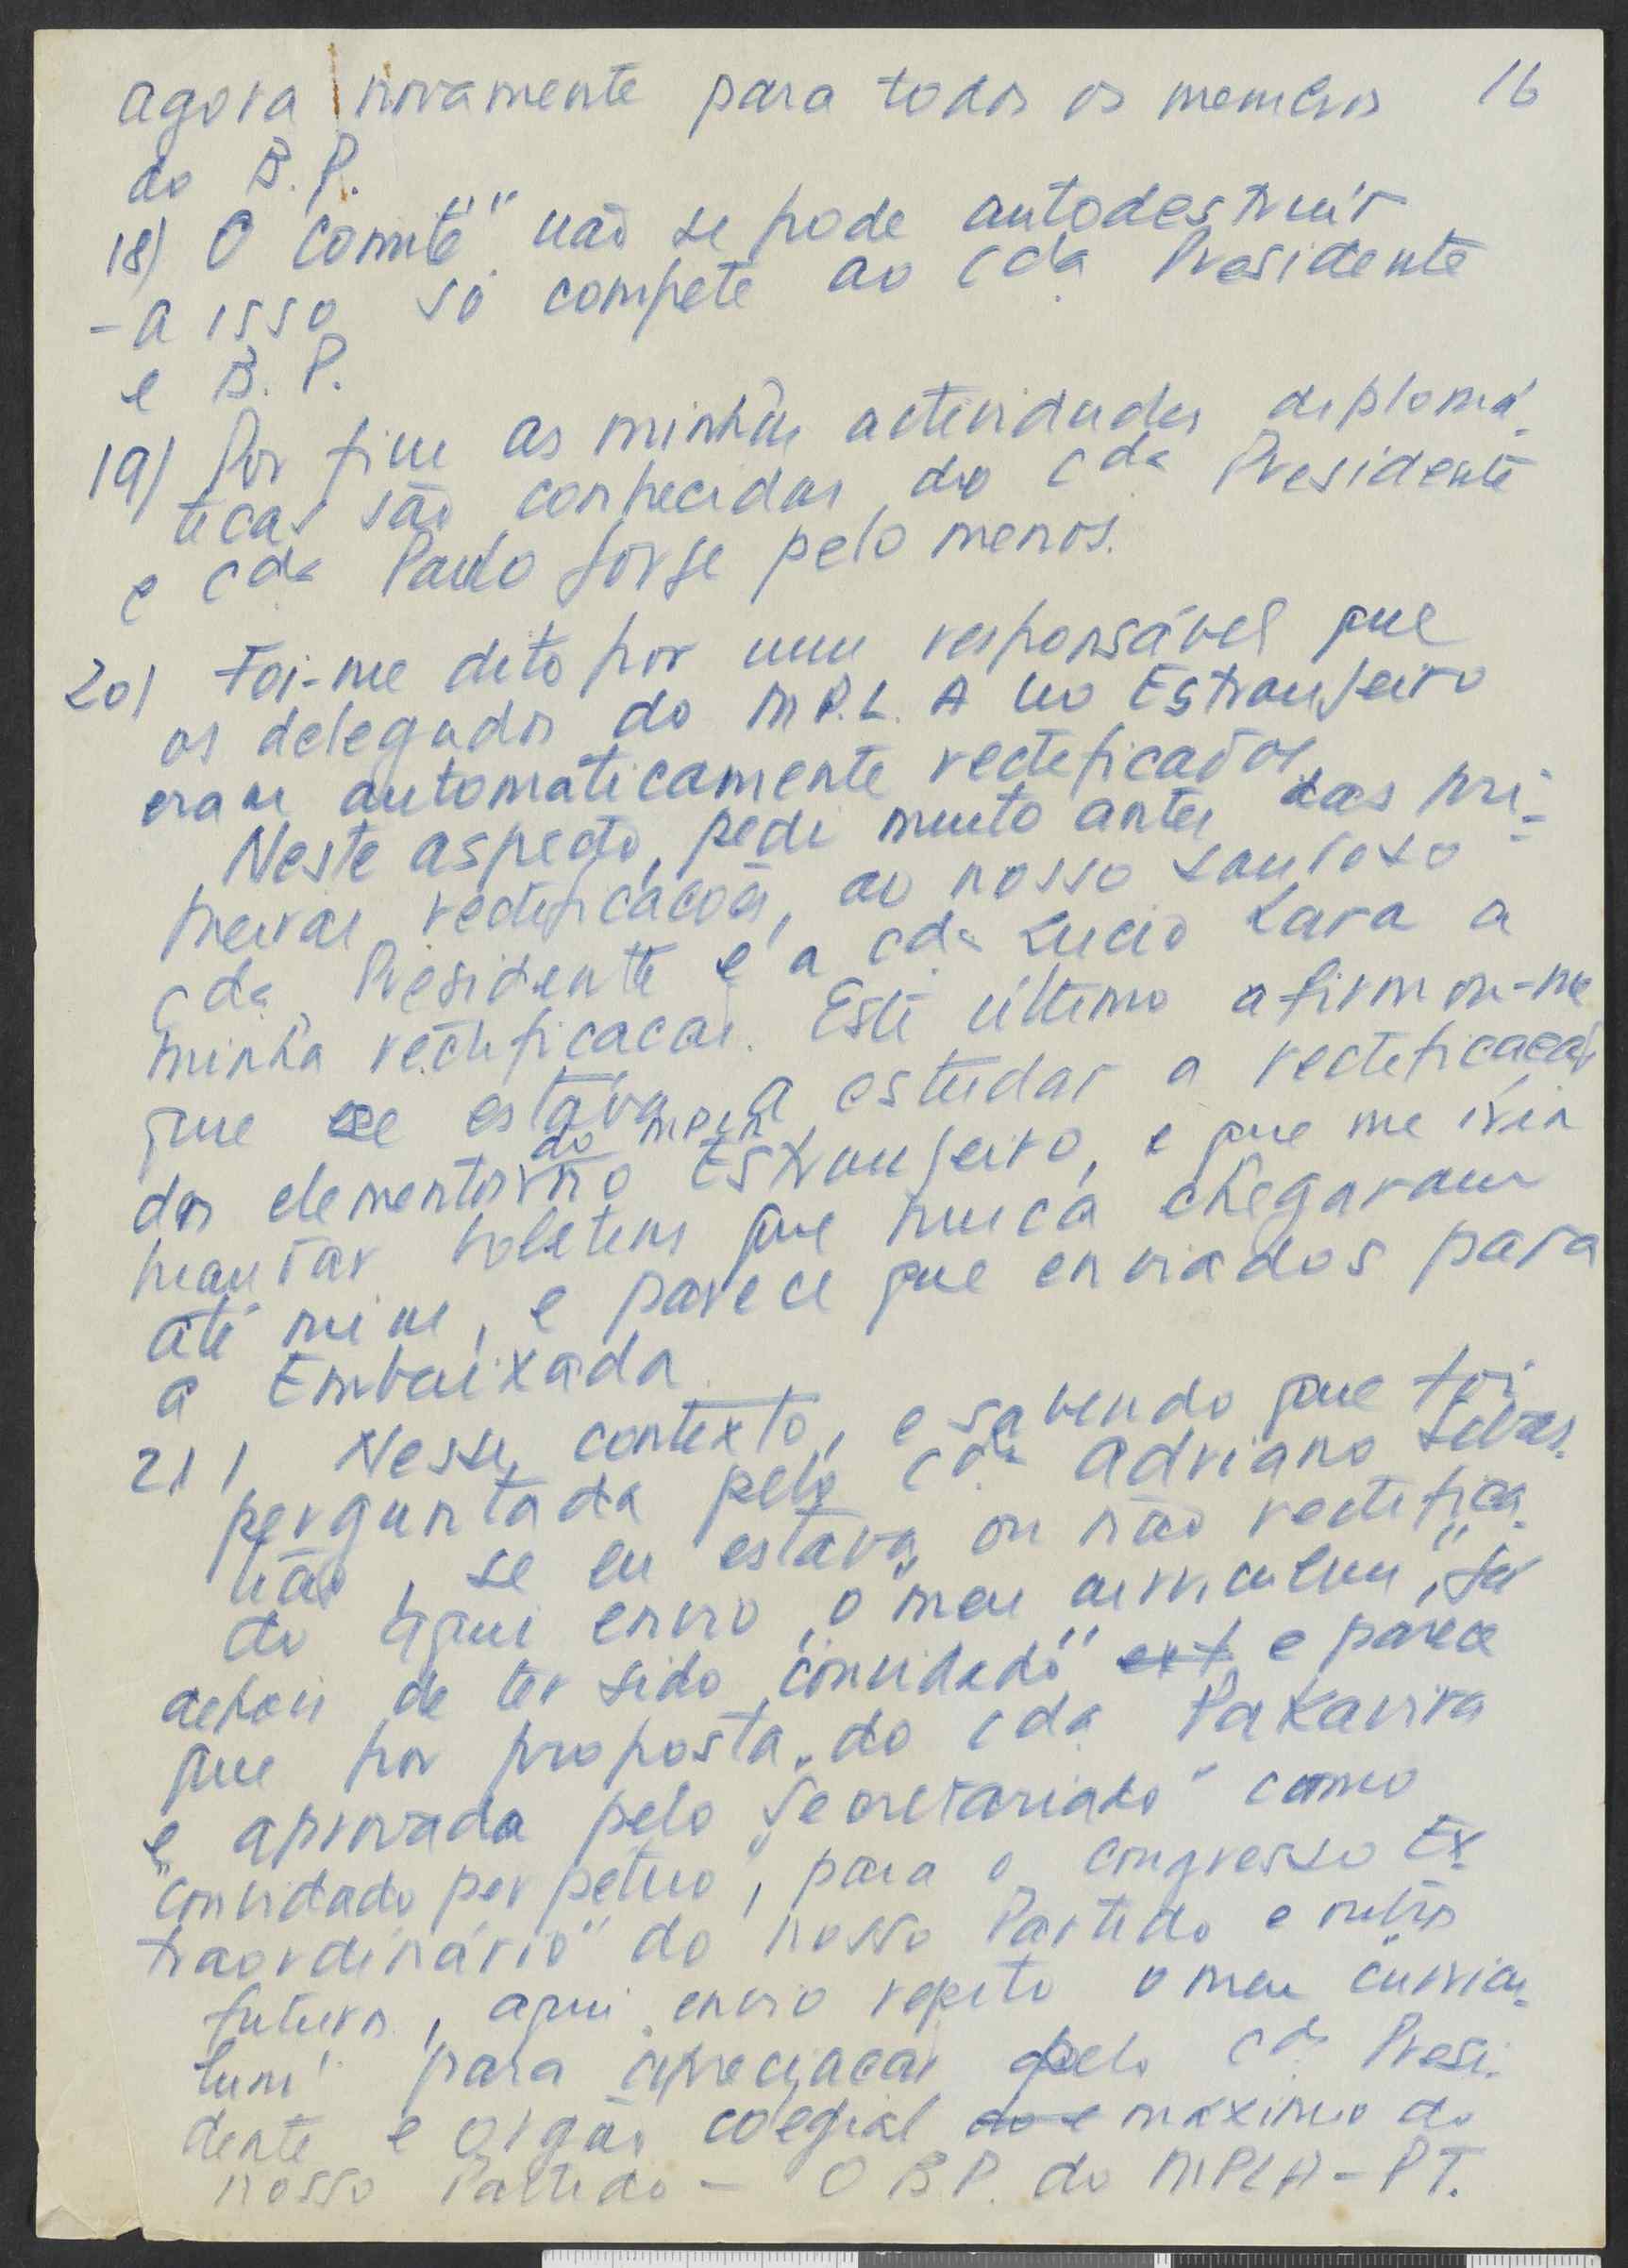 agora novamente para todos os membros 16
do B.P.
18) O "comité" não se pode autodestruir
- a isso só compete ao cda Presidente
e B.P.
19) Por fim as minhas actividades diplomá-
ticas são conhecidas do cda Presidente
e cda Paulo Jorge pelo menos.
20) Foi-me dito por um responsável que
os delegados do M.P.L.A no Estranjeiro
eram automáticamente rectificados.
Neste aspecto, pedi muito antes das pri-
meiras rectificacões, ao nosso saudoso
cda Presidente e a cda Lucio Lara a
minha rectificacão. Este último afirmou-me
que se estava a estudar a rectificacão
dos elementos do MPLA no Estranjeiro, e que me iria
mandar boletins que nunca chegaram
até mim, e parece que enviados para
a Embaixada.
21) Nesse contexto, e sabendo que foi
perguntada pelo cda Adriano Sebas-
tião, se eu estava ou não rectifica-
do aqui envio o meu "curriculum", já
depois de ter sido "convidado" ext e parece
que por proposta do cda Pakavira
e aprovada pelo "Secretariado" como
"convidado perpétuo", para o congresso Ex-
traordinário" do nosso Partido e outros
futuros, aqui envio repito o meu "curricu-
lum" para apreciacão pelo cda Presi-
dente e orgão colegial do e máximo do
nosso Partido - O B.P. do MPLA-PT.